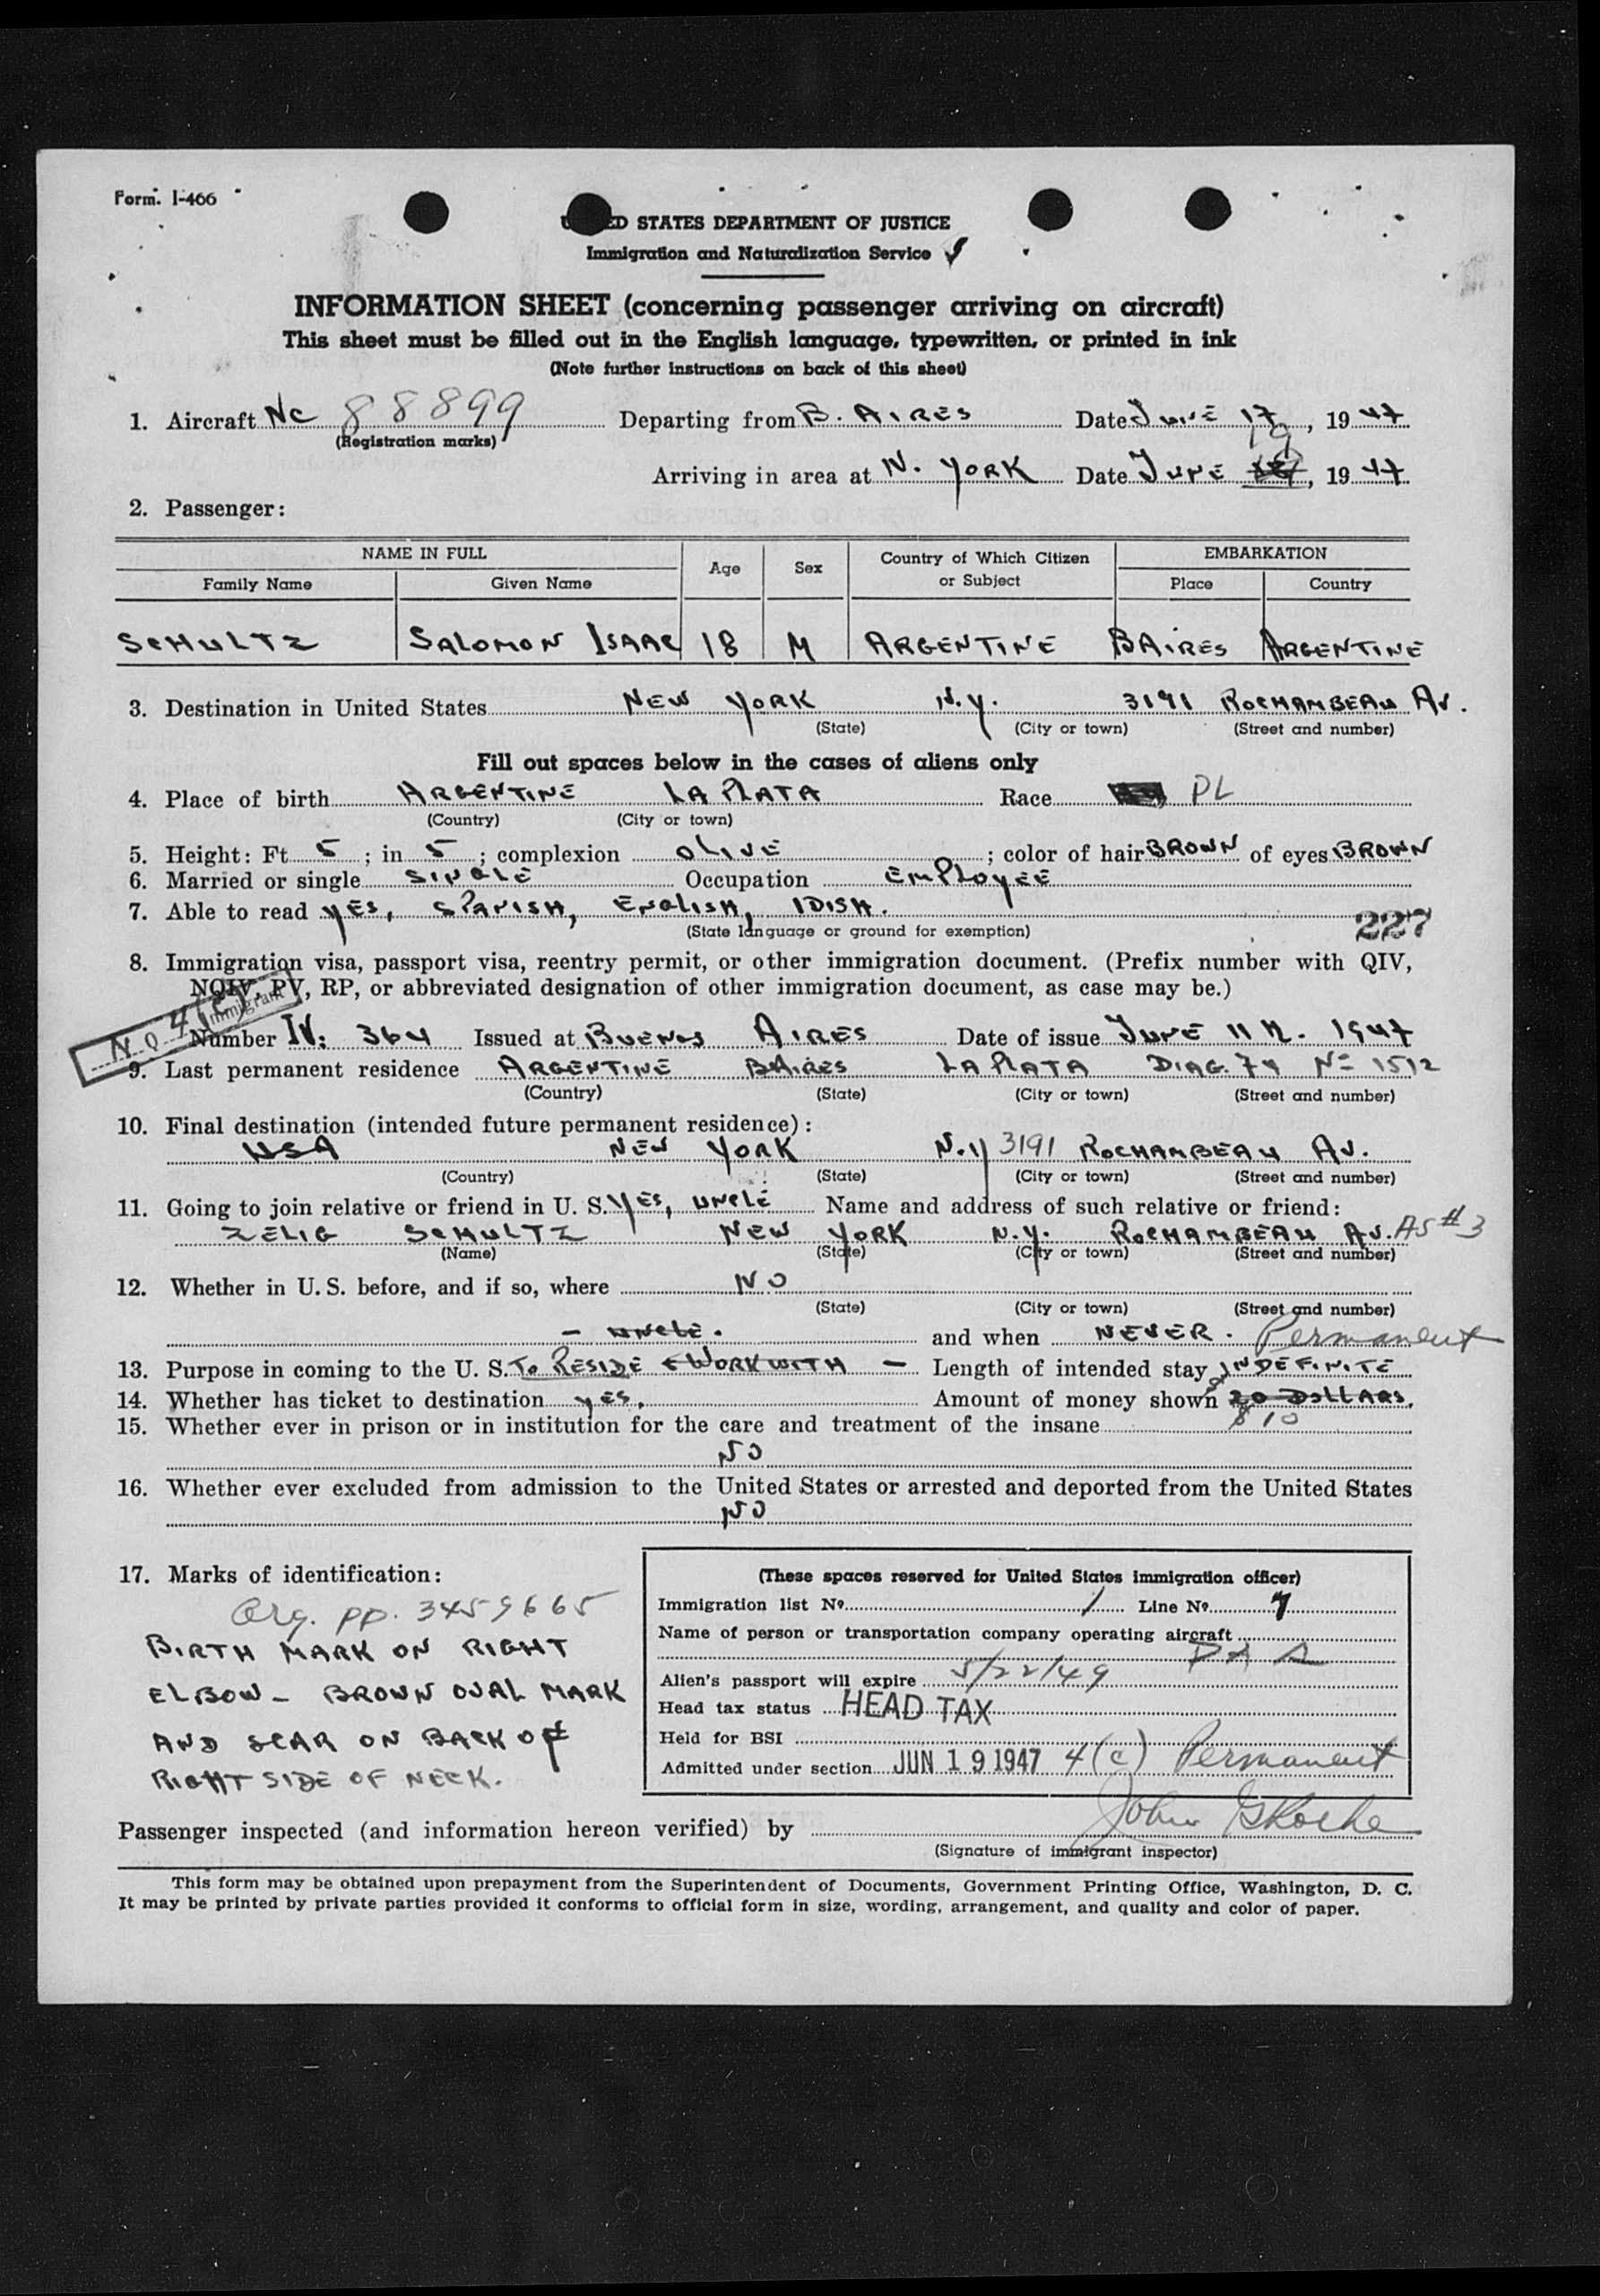 Form. I-466
ED STATES DEPARTMENT OF JUSTICE
Immigration and Naturalization Service
INFORMATION SHEET (concerning passenger arriving on aircraft)
This sheet must be filled out in the English language, typewritten, or printed in ink
(Note further instructions on back of this sheet)
1. Aircraft NC 88899 Departing from B. AIRES Date JUNE 17, 1947
(Registration marks)
19
Arriving in area at N. YORK Date JUNE , 1947
2. Passenger:
NAME IN FULL Age Sex Country of Which Citizen or Subject EMBARKATION
Family Name Given Name Place Country
SCHULTZ SALOMON ISAAC 18 M ARGENTINE BAIRES ARGENTINE
3. Destination in United States NEW YORK N.Y. 3191 ROCHAMBEAU AV.
(State) (City or town) (Street and number)
Fill out spaces below in the cases of aliens only
4. Place of birth ARGENTINE LA PLATA Race PL
(Country) (City or town)
5. Height: Ft 5 ; in 5 ; complexion OLIVE ; color of hair BROWN of eyes BROWN
6. Married or single SINGLE Occupation EMPLOYEE
7. Able to read YES, SPANISH, ENGLISH, IDISH.
(State language or ground for exemption)
227
8. Immigration visa, passport visa, reentry permit, or other immigration document. (Prefix number with QIV,
NQIV, PV, RP, or abbreviated designation of other immigration document, as case may be.)
N Q 4(c) Immigrant
Number IV: 364 Issued at BUENOS AIRES Date of issue JUNE 11 1947
9. Last permanent residence ARGENTINE BAIRES LA PLATA DIAG. 74 Nº 1512
(Country) (State) (City or town) (Street and number)
10. Final destination (intended future permanent residence):
USA NEW YORK N.Y 3191 ROCHAMBEAU AV.
(Country) (State) (City or town) (Street and number)
11. Going to join relative or friend in U. S. YES, UNCLE Name and address of such relative or friend:
ZELIG SCHULTZ NEW YORK N.Y. ROCHAMBEAU AV. AS #3
(Name) (State) (City or town) (Street and number)
12. Whether in U. S. before, and if so, where NO
(State) (City or town) (Street and number)
- UNCLE. and when NEVER. Permanent
13. Purpose in coming to the U. S. TO RESIDE & WORK WITH - Length of intended stay INDEFINITE
14. Whether has ticket to destination YES. Amount of money shown 20 DOLLARS.
15. Whether ever in prison or in institution for the care and treatment of the insane $10
NO
16. Whether ever excluded from admission to the United States or arrested and deported from the United States
NO
17. Marks of identification:
Arg. pp. 3459665
BIRTH MARK ON RIGHT
ELBOW - BROWN OVAL MARK
AND SCAR ON BACK OF
RIGHT SIDE OF NECK.
(These spaces reserved for United States immigration officer)
Immigration list Nº 1 Line Nº 7
Name of person or transportation company operating aircraft
P A A
Alien's passport will expire 5/22/49
Head tax status HEAD TAX
Held for BSI
Admitted under section JUN 19 1947 4(c) Permanent
Passenger inspected (and information hereon verified) by John
(Signature of immigrant inspector)
This form may be obtained upon prepayment from the Superintendent of Documents, Government Printing Office, Washington, D. C.
It may be printed by private parties provided it conforms to official form in size, wording, arrangement, and quality and color of paper.